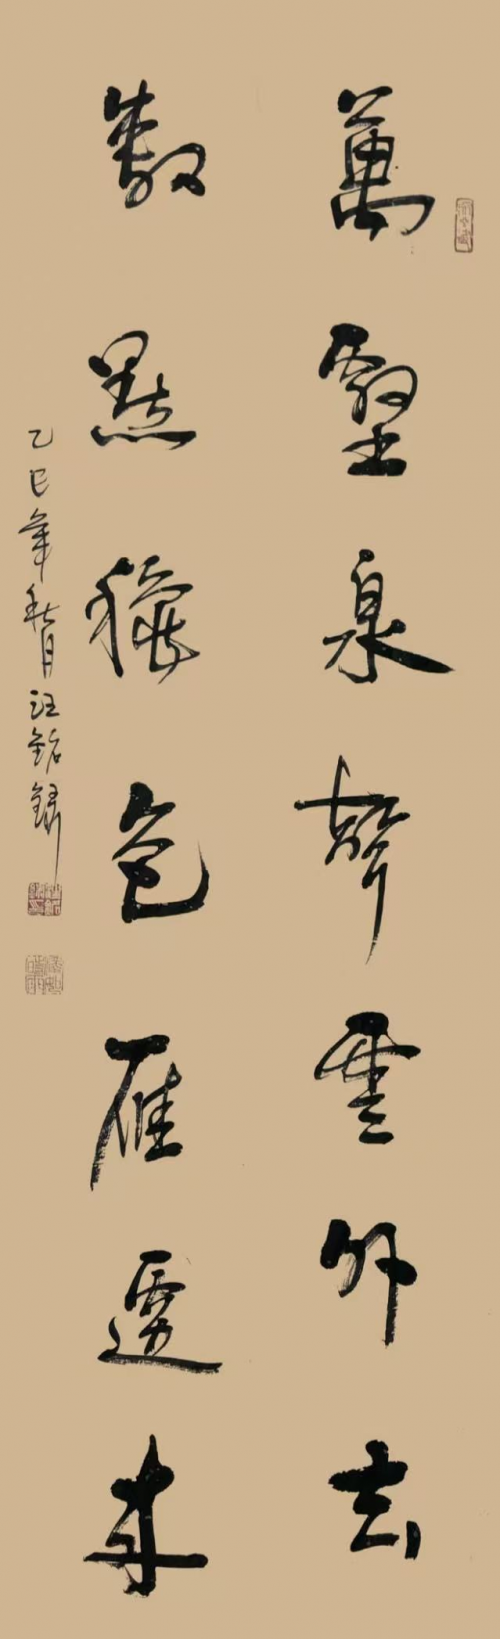 萬壑泉聲雲外去
數點穐色雁邊來
乙巳年秋月汪